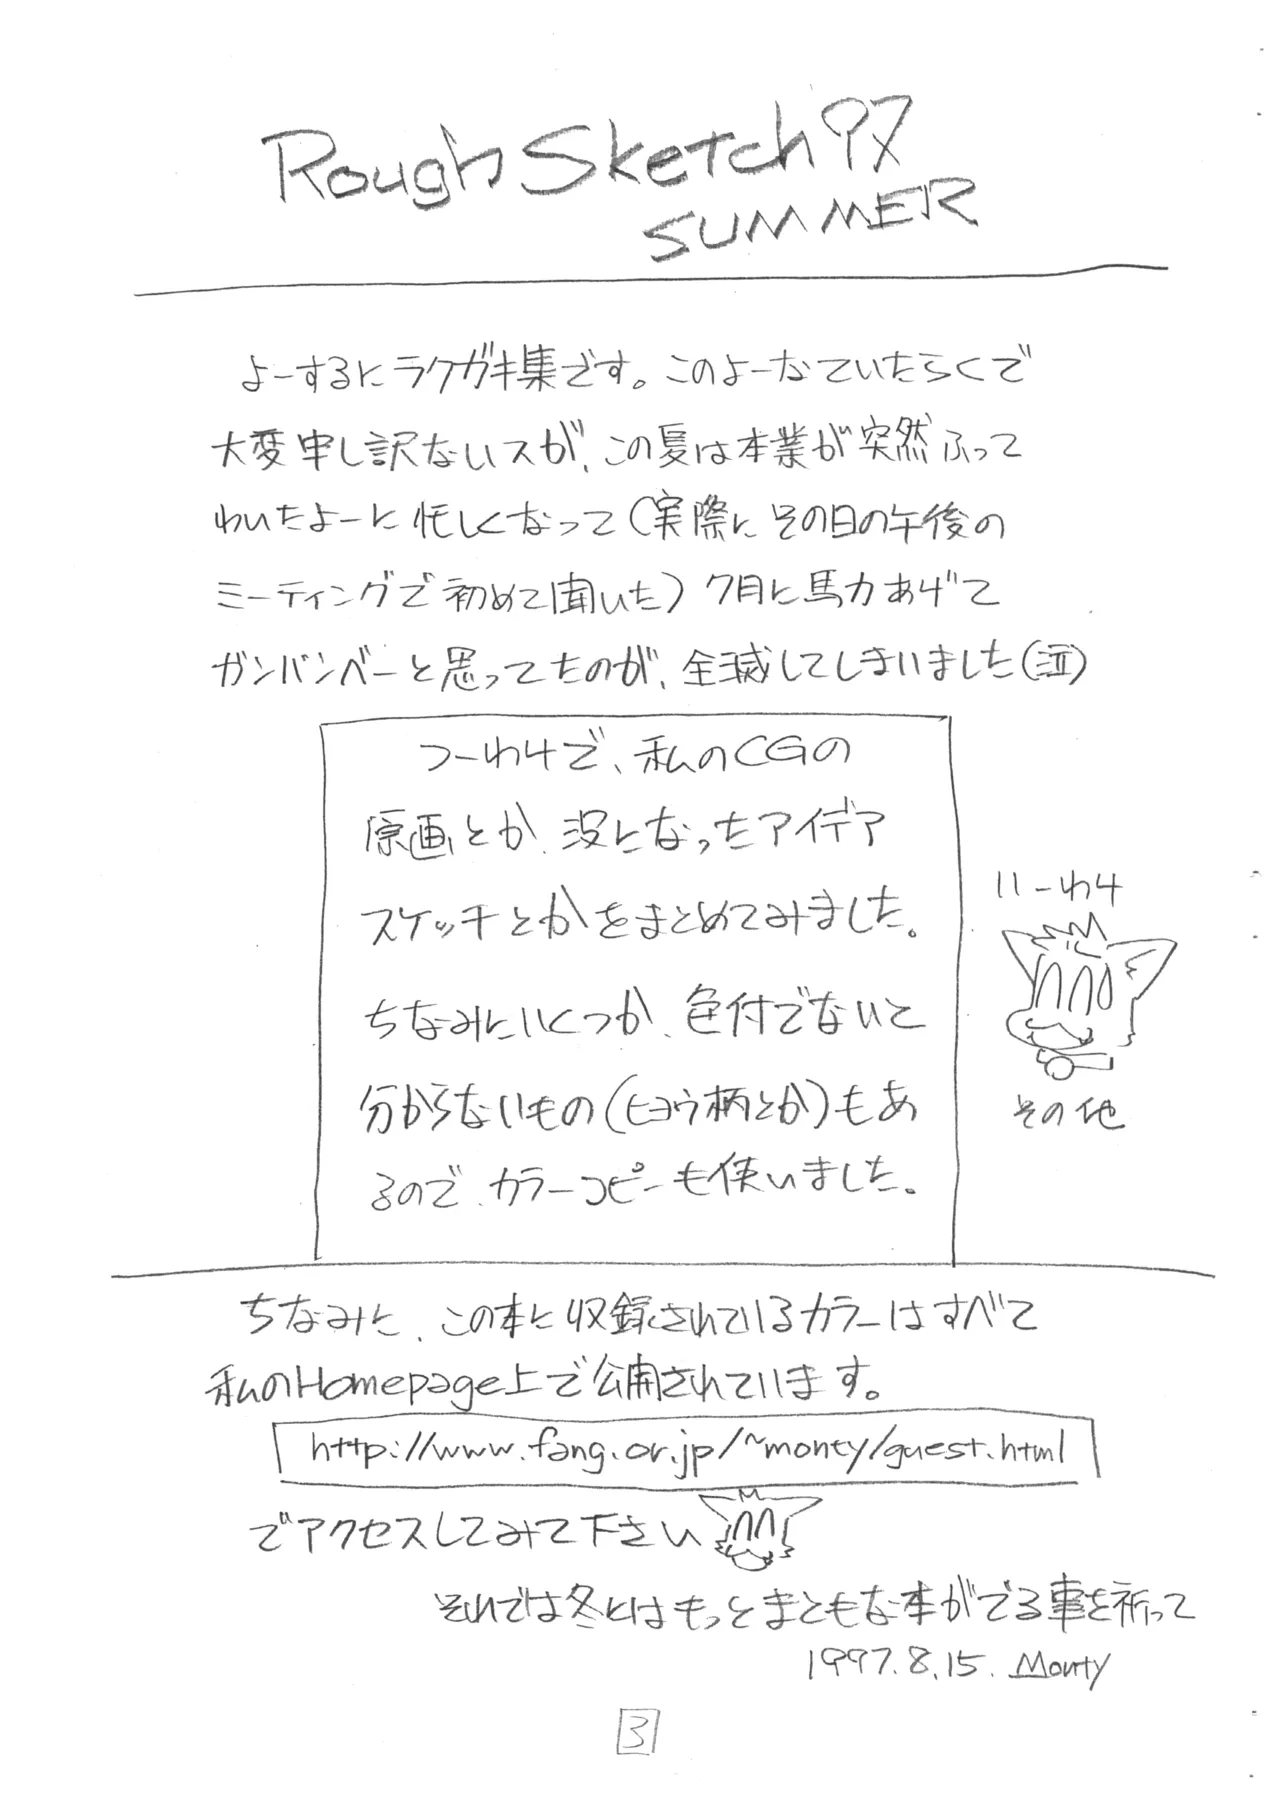 Rough Sketch 97
SUMMER
よーするにラクガキ集です。このよーなていたらくで
大変申し訳ないスが、この夏は本業が突然ふって
わいたよーに忙しくなって(実際にその日の午後の
ミーティングで初めて聞いた)7月に馬力あげて
ガンバンベーと思ってたのが、全滅してしまいました(泣)
つーわけで、私のCGの
原画とか、没になったアイデア
スケッチとかをまとめてみました。
ちなみにいくつか、色付でないと
分からないもの(ヒョウ柄とか)もあ
るので、カラーコピーも使いました。
いーわけ
その他
ちなみに、この本に収録されているカラーはすべて
私のHomepage上で公開されています。
http://www.fang.or.jp/~monty/guest.html
でアクセスしてみて下さい
それでは冬にはもっとまともな本がでる事を祈って
1997.8.15. Monty
3